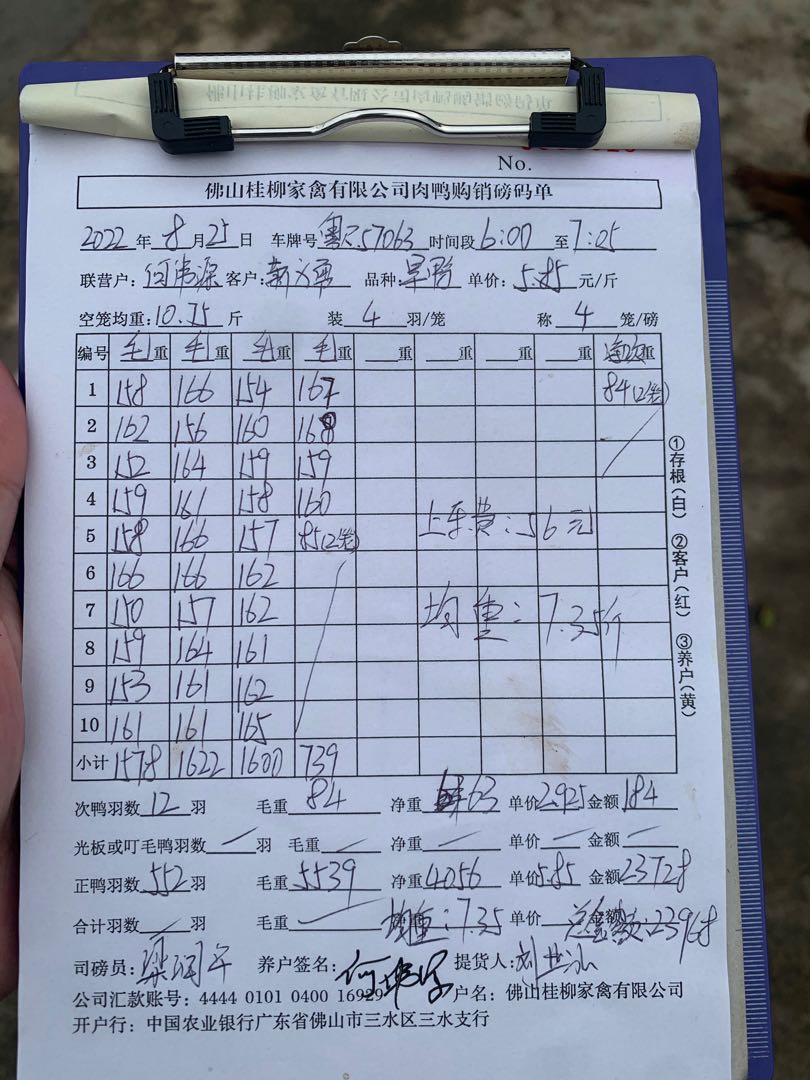 No.
佛山桂柳家禽有限公司肉鸭购销磅码单
2022年8月25日 车牌号 57063 时间段6:00至7:05
联营户: 客户: 品种: 单价:5.85元/斤
空笼均重:10.75斤 装4羽/笼 称4笼/磅
编号 毛重 毛重 毛重 毛重 重 重 重 重 重
1 158 166 154 167 84(2笼)
2 162 156 160 168
3 152 164 159 159
4 159 161 158 160
5 158 166 157 85(2笼) 上车费:56元
6 166 166 162
7 150 157 162 均重:7.35斤
8 159 164 161
9 153 161 162
10 161 161 165
小计 1578 1622 1600 739
①存根(白) ②客户(红) ③养户(黄)
次鸭羽数12羽 毛重84 净重63 单价2.925金额184
光板或叮毛鸭羽数 羽 毛重 净重 单价 金额
正鸭羽数552羽 毛重5539 净重4056 单价5.85金额23728
合计羽数 羽 毛重 均重:7.35 单价 总金额:23968
司磅员: 养户签名: 提货人:
公司汇款账号:4444 0101 0400 16929 户名:佛山桂柳家禽有限公司
开户行:中国农业银行广东省佛山市三水区三水支行